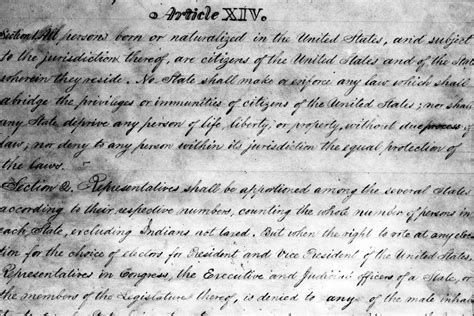 Article XIV.
Section 1. All persons born or naturalized in the United States, and subject
to the jurisdiction thereof, are citizens of the United States and of the State
wherein they reside. No State shall make or enforce any law which shall
abridge the privileges or immunities of citizens of the United States; nor shall
any State deprive any person of life, liberty, or property, without due process of
law; nor deny to any person within its jurisdiction the equal protection of
the laws.
Section 2. Representatives shall be apportioned among the several States
according to their respective numbers, counting the whole number of persons in
each State, excluding Indians not taxed. But when the right to vote at any elec
tion for the choice of electors for President and Vice President of the United States,
Representatives in Congress, the Executive and Judicial officers of a State, or
the members of the Legislature thereof, is denied to any of the male inhab
itants of such State, being